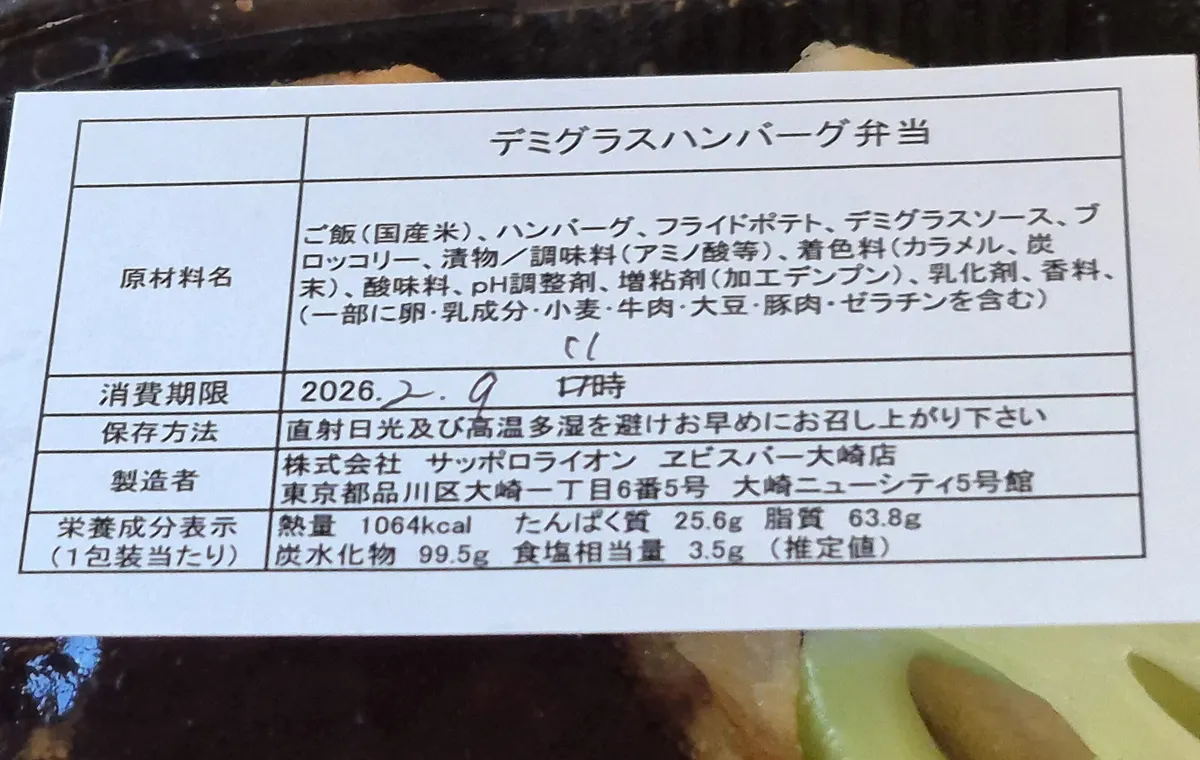 デミグラスハンバーグ弁当
原材料名
ご飯(国産米)、ハンバーグ、フライドポテト、デミグラスソース、ブ
ロッコリー、漬物/調味料(アミノ酸等)、着色料(カラメル、炭
末)、酸味料、pH調整剤、増粘剤(加工デンプン)、乳化剤、香料、
(一部に卵・乳成分・小麦・牛肉・大豆・豚肉・ゼラチンを含む)
消費期限
2026.2.9 17時
保存方法
直射日光及び高温多湿を避けお早めにお召し上がり下さい
製造者
株式会社 サッポロライオン ヱビスバー大崎店
東京都品川区大崎一丁目6番5号 大崎ニューシティ5号館
栄養成分表示
(1包装当たり)
熱量 1064kcal たんぱく質 25.6g 脂質 63.8g
炭水化物 99.5g 食塩相当量 3.5g (推定値)